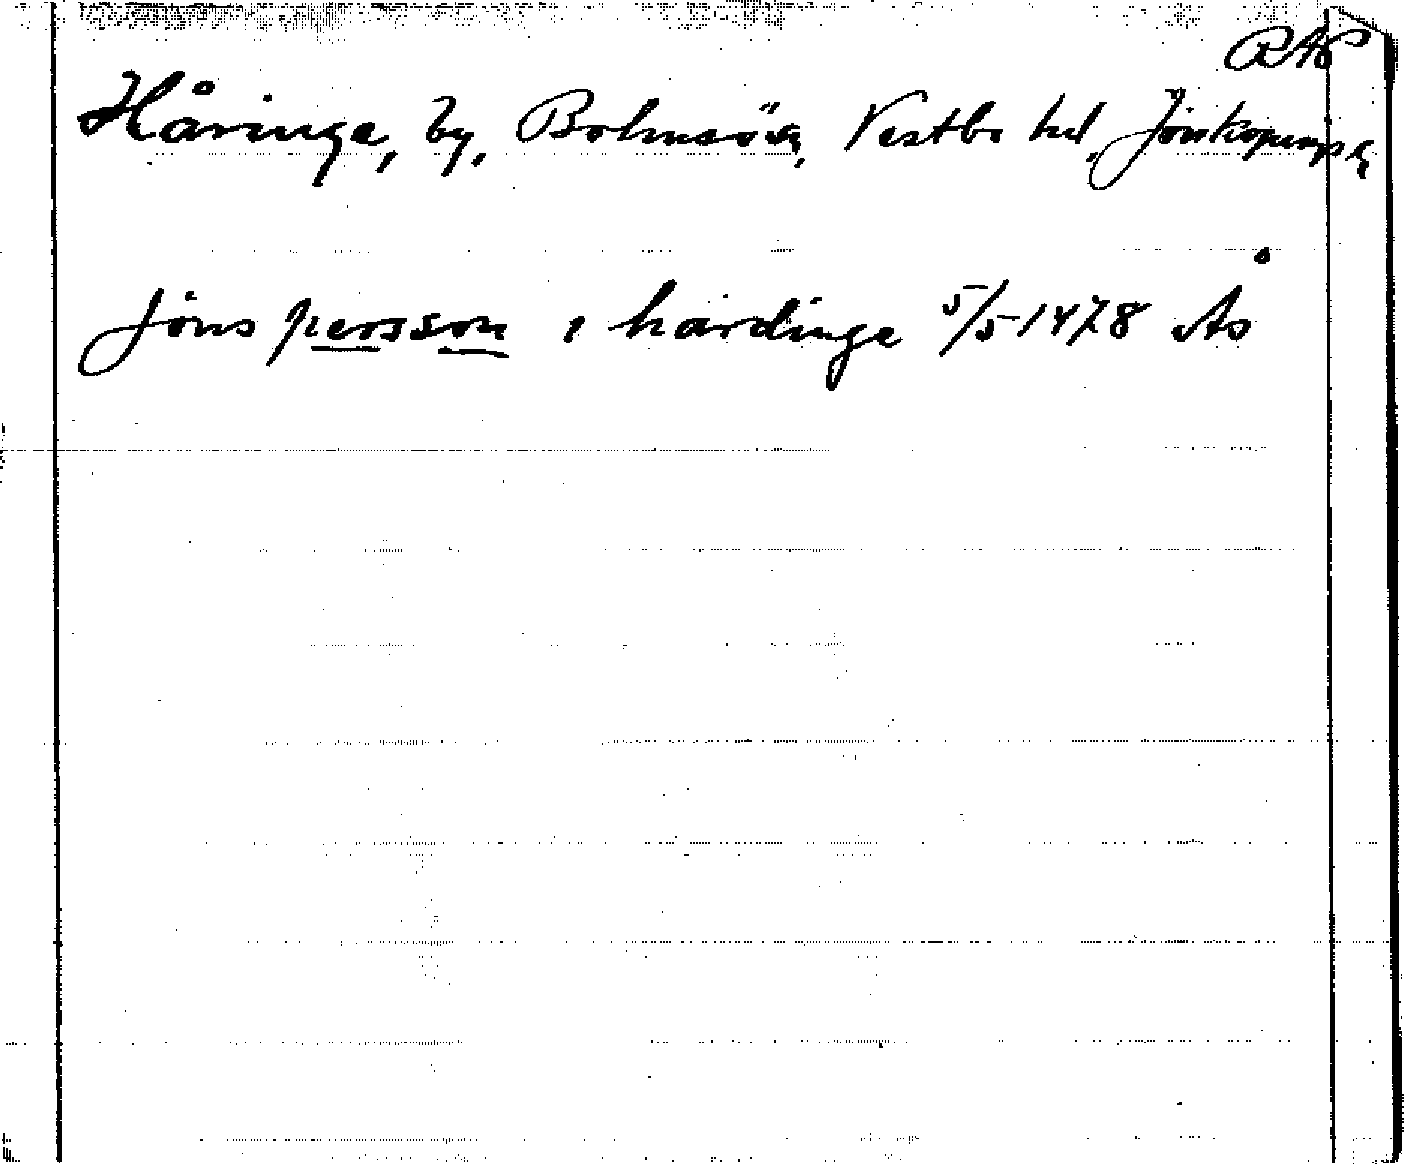 RAP
Håringe, by, Bolmsö sn, Vestbo hd, Jönköpings l,
Jöns persson i hardinge 5/5-1478 Ås